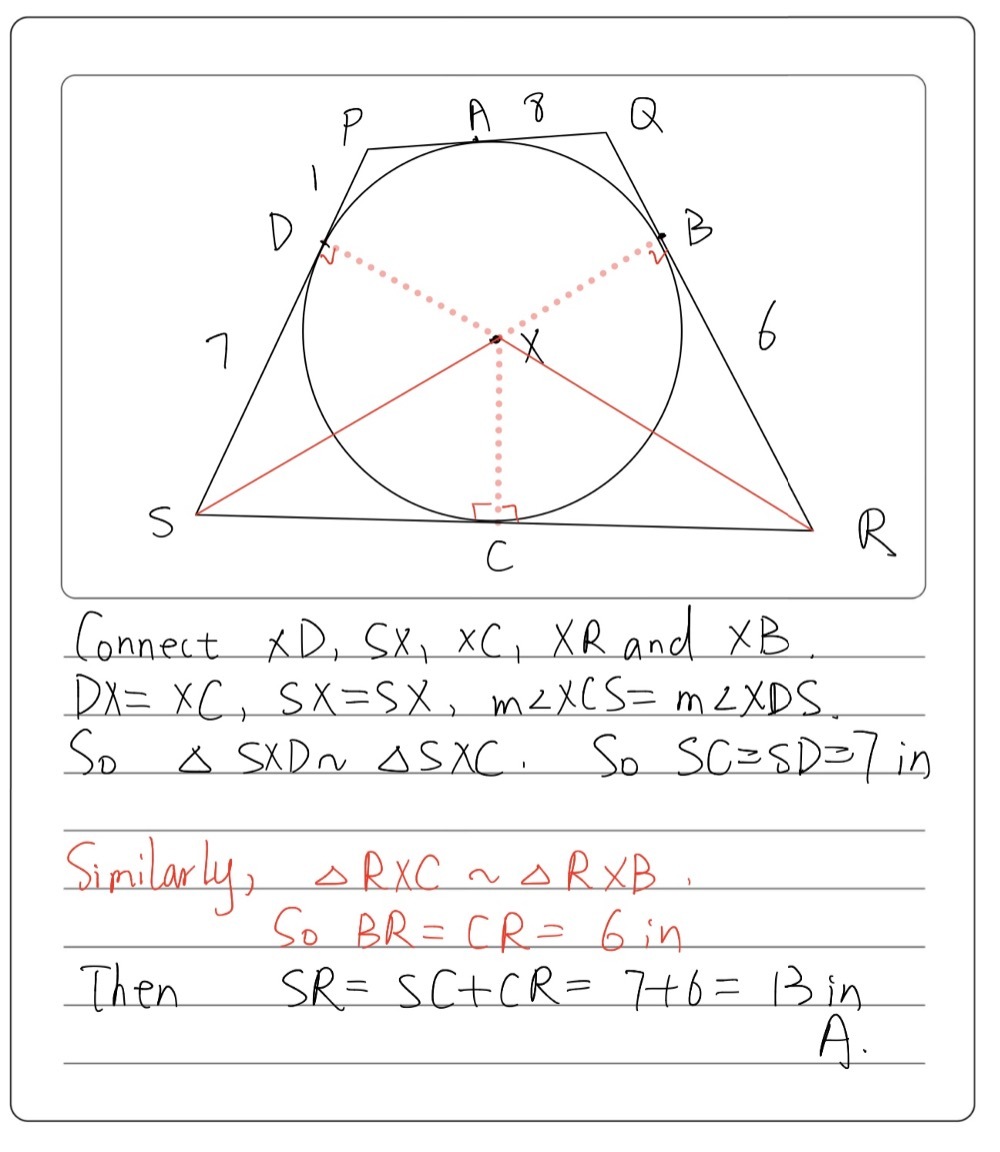 P A 8 Q
1
D B
7 X 6
S R
C
Connect XD, SX, XC, XR and XB.
DX = XC, SX = SX, m∠XCS = m∠XDS.
So △ SXD ~ △SXC. So SC = SD = 7 in
Similarly, △ RXC ~ △ RXB.
So BR = CR = 6 in
Then SR = SC + CR = 7+6 = 13 in
A.